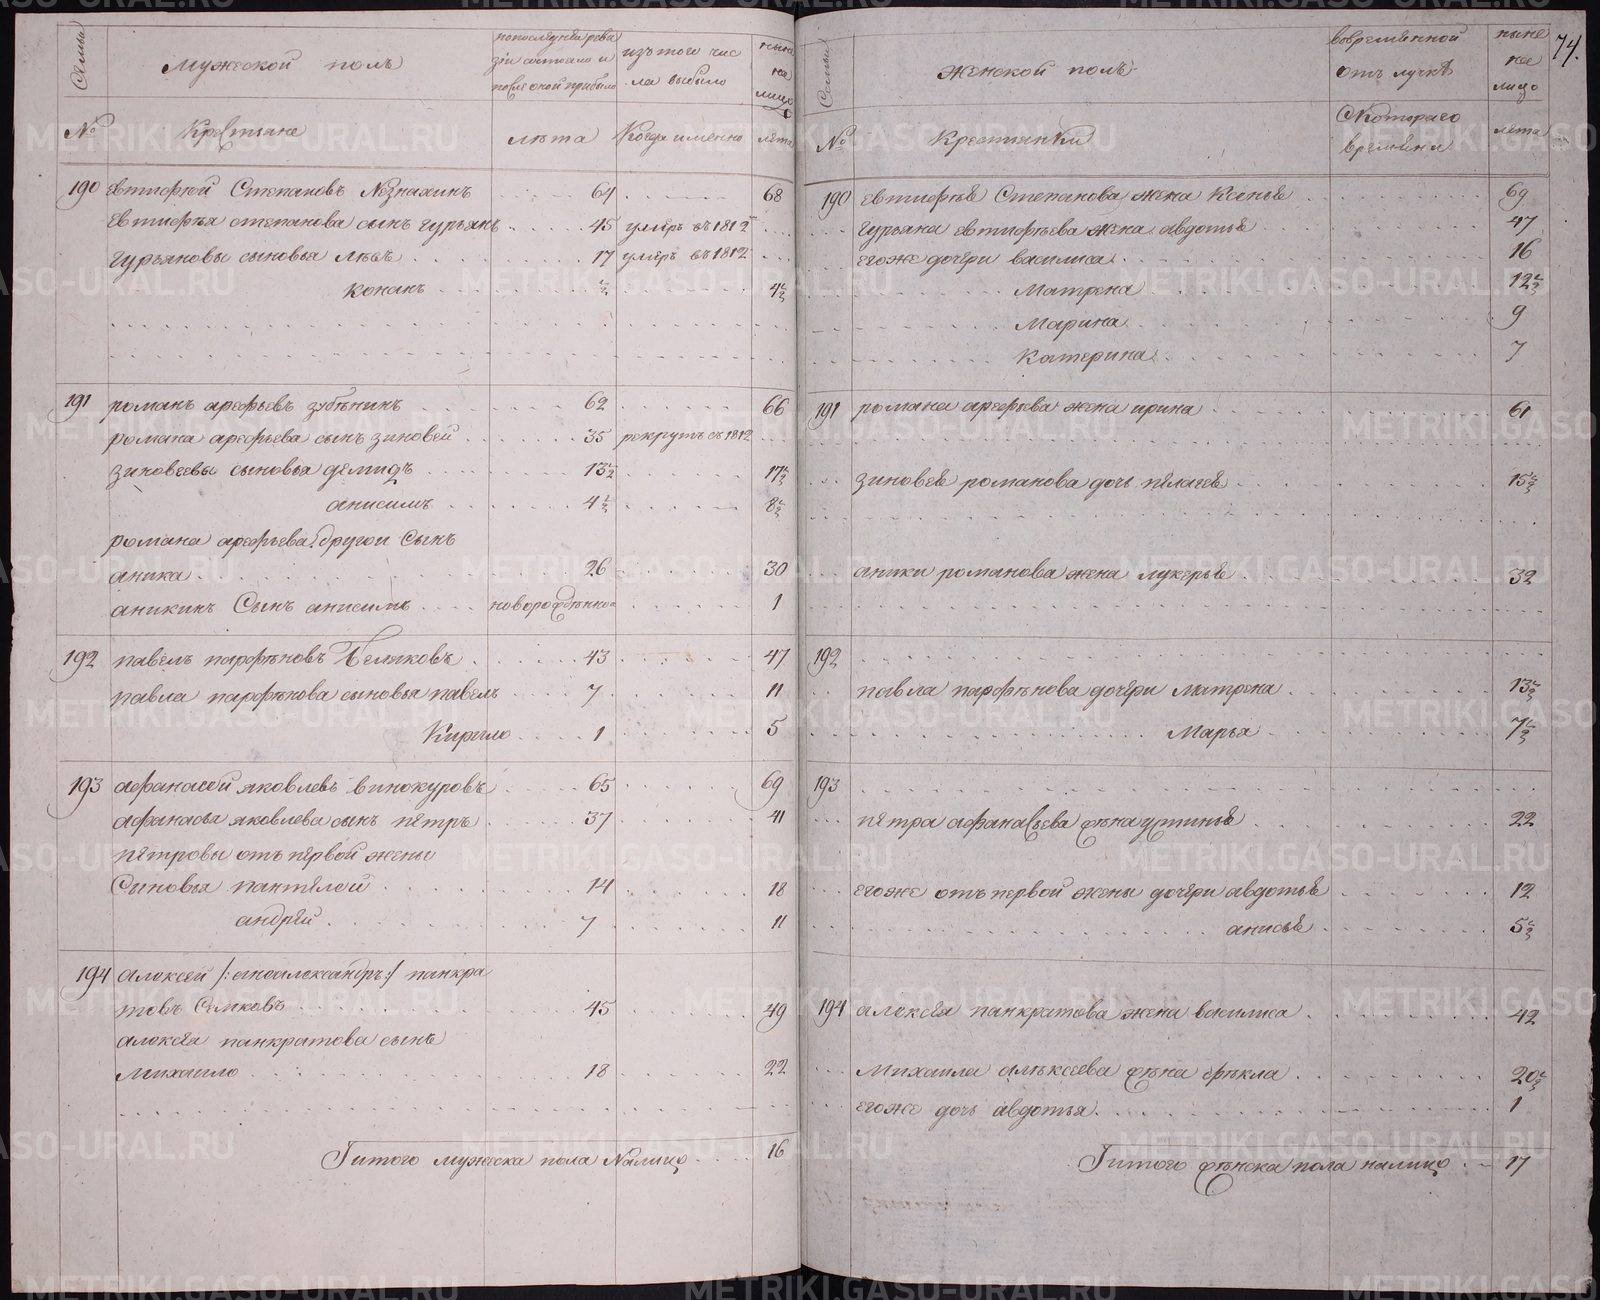 Семьи
Мужеской полъ
попоследней реви
зіи состояло и
после оной прибыло
изътого чис
ла выбыло
ныне
на
лицо
№
Крестьяне
лѣта
Когда именно
лета
190 Евтифѣй Степановъ Незнахинъ 64 68
Евтифѣя степанова сынъ гурьянъ 45 умеръ въ1812
гурьяновы сыновья левъ 17 умеръ въ1812
Кононъ ½ 4½
191 романъ арефьевъ зубѣнинъ 62 66
романа арефьева сынъ зиновей 35 рекрутъ съ1812
зиновеевы сыновья демидъ 13½ 17½
анисимъ 4½ 8½
романа арефьева другой Сынъ
аника 26 30
аникинъ Сынъ анисимъ новорожденно 1
192 павелъ парфеновъ Беляковъ 43 47
павла парфенова сыновья павелъ 7 11
Кирило 1 5
193 афанасей яковлевъ винокуровъ 65 69
афанасья яковлева сынъ петръ 37 41
петровы отъ первой жены
Сыновья пантелей 14 18
андрей 7 11
194 алексей /:аноалександръ:/ панкра
товъ Семковъ 45 49
алексея панкратова сынъ
михаило 18 22
Iитого мужеска пола Налицо 16
74.
Семьи
женской полъ
вовременной
отъ лучкѣ
ныне
на
лицо
№
Крестьянки
Скотораго
времени
лета
190 евтифѣя Степанова жена Ксенья 69
гурьяна евтифьева жена авдотья 47
егоже дочери василиса 16
Матрена 12½
Марина 9
Катерина 7
191 романа арефьева жена ирина 61
зиновея романова дочь пелагея 15½
аники романова жена лукерья 32
192
павла парфенова дочери матрена 13½
Марья 7½
193
петра афанасьева жена устинья 22
егоже отъ первой жены дочери авдотья 12
анисья 5½
194 алексея панкратова жена василиса 42
михаила алексеева жена фекла 20½
егоже дочь авдотья 1
Iитого женска пола налицо 17
METRIKI.GASO-URAL.RU